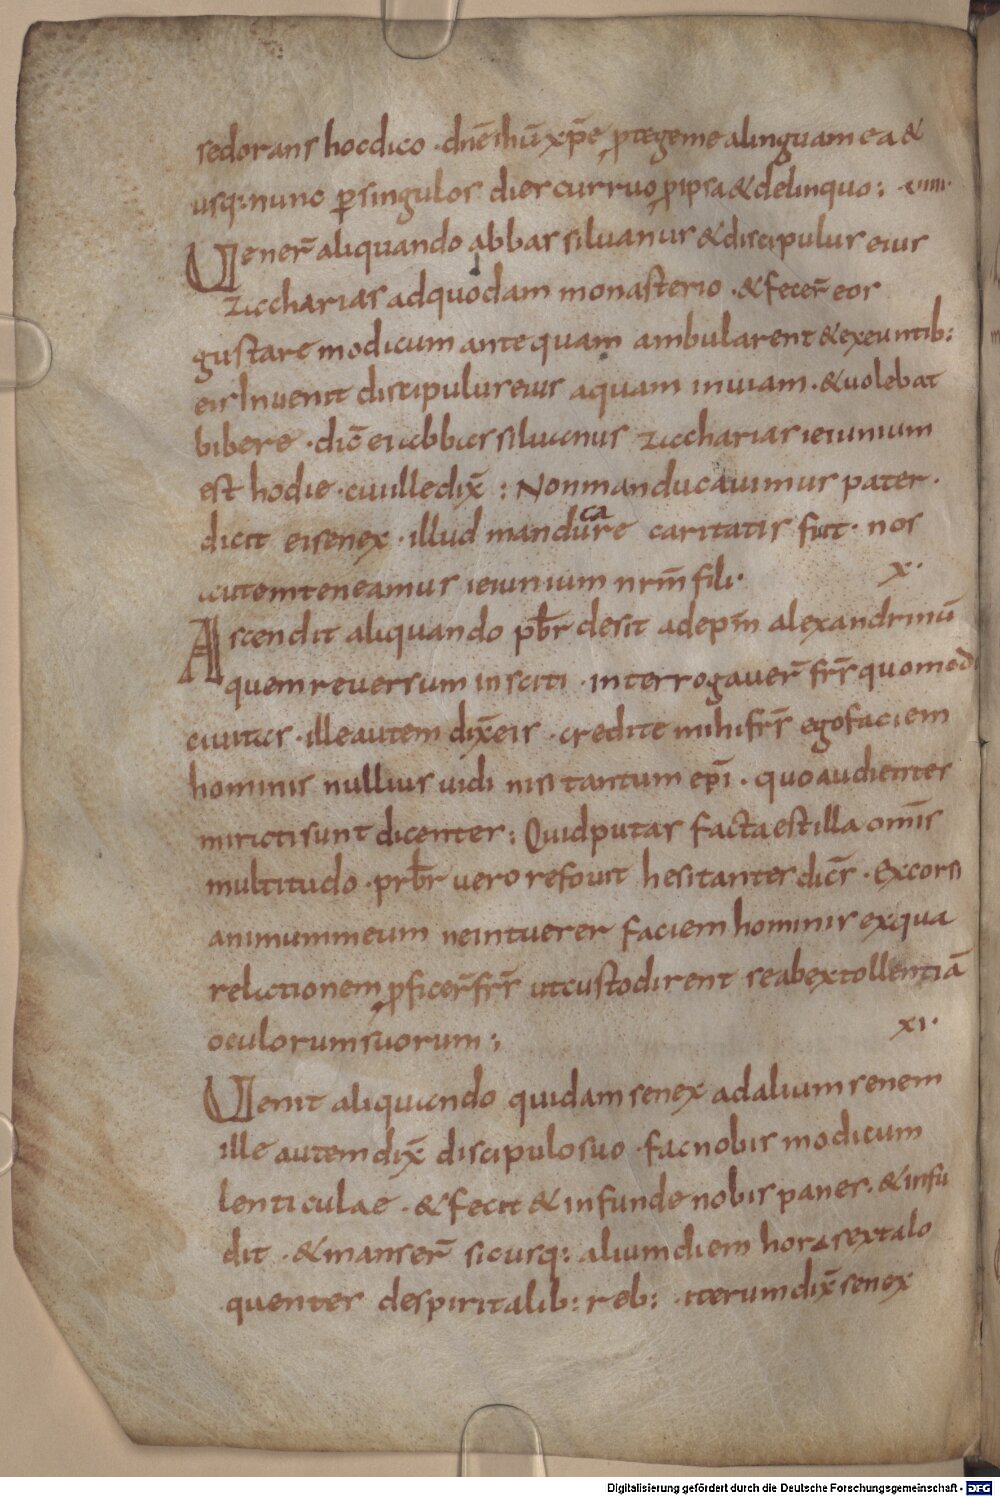 sedorans hocdico · dnē ihū xp̄e ꝓtegeme alinguam ea &
usq: nunc ꝑsingulos dies curruo ꝓipsa & delinquo : · viiii ·
Uener̄ aliquando abbas siluanus & discipulus eius
zaccharias ad quodam monasterio · & fecer̄ eos
gustare modicum antequam ambularent & exeuntib:
eis Inuenit discipulus eius aquam inuiam · & uolebat
bibere · dic̄ ei abbas siluanus zaccharias ieiunium
est hodie · at ille dix̄ : Non manducauimus pater ·
dicit ei senex · illud manducare caritatis fuit · nos
autem teneamus ieiunium nrm̄ fili · x ·
Ascendit aliquando pb̄r de sit ad ep̄m alexandrinū
quem reuersum insciti · interrogauer̄ fr̄s quomodo
ciuitas · ille autem dix̄ eis · credite mihi fr̄s ego faciem
hominis nullius uidi nisi tantum ep̄i · quo audientes
mirati sunt dicentes : Quid putas facta est illa om̄is
multitudo · prb̄r uero refouit hesitantes dic̄s · Excorsi
animum meum ne intuerer faciem hominis ex qua
relationem ꝓficer̄ fr̄s ut custodirent se ab extollentiā
oculorum suorum ; xi ·
Uenit aliquando quidam senex ad alium senem
ille autem dix̄ discipulo suo · fac nobis modicum
lenticulae · & fecit & infunde nobis panes · & infu
dit · & manser̄ sic usq: alium diem hora sexta lo
quentes de spiritalib: reb: · iterum dix̄ senex
Digitalisierung gefördert durch die Deutsche Forschungsgemeinschaft - DFG